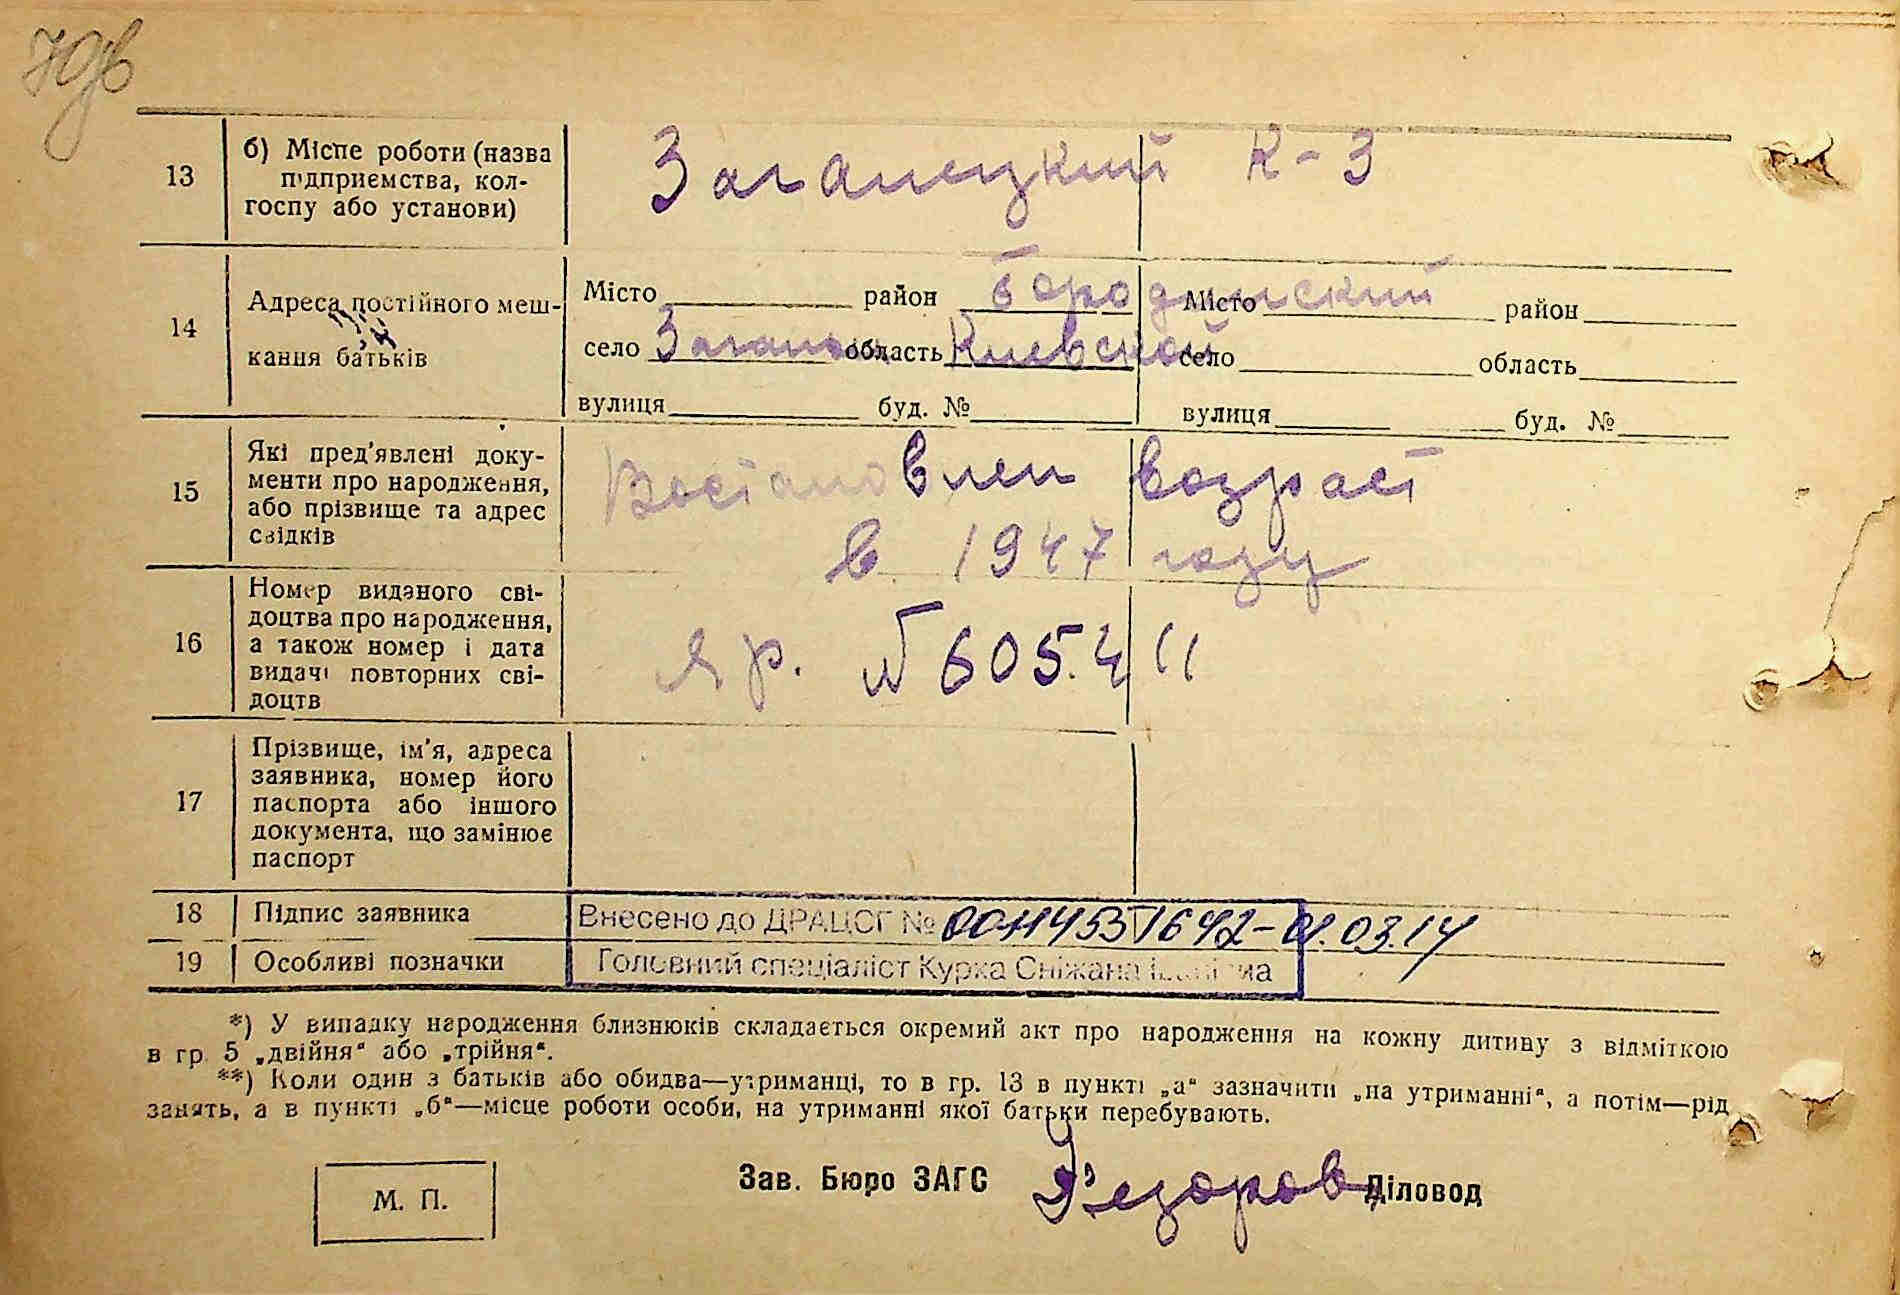 13
б) Місце роботи (назва
підприємства, кол-
госпу або установи)
Заганецкий К-З
14
Адреса постійного меш-
кання батьків
Місто район Бородянский
село область Киевской
вулиця буд. №
Місто район
село область
вулиця буд. №
15
Які пред'явлені доку-
менти про народження,
або прізвище та адрес
свідків
Востановлен возраст
в 1947 году
16
Номер виданого сві-
доцтва про народження,
а також номер і дата
видачі повторних сві-
доцтв
яр. № 605411
17
Прізвище, ім'я, адреса
заявника, номер його
паспорта або іншого
документа, що замінює
паспорт
18
Підпис заявника
Внесено до ДРАЦСГ № 00114537642-01.03.14
19
Особливі позначки
Головний спеціаліст Курка Сніжана Іванівна
*) У випадку народження близнюків складається окремий акт про народження на кожну дитину з відміткою
в гр. 5 „двійня" або „трійня".
**) Коли один з батьків або обидва—утриманці, то в гр. 13 в пункті „а" зазначити „на утриманні", а потім—рід
занять, а в пункті „б"—місце роботи особи, на утриманні якої батьки перебувають.
М. П.
Зав. Бюро ЗАГС Федоров Діловод